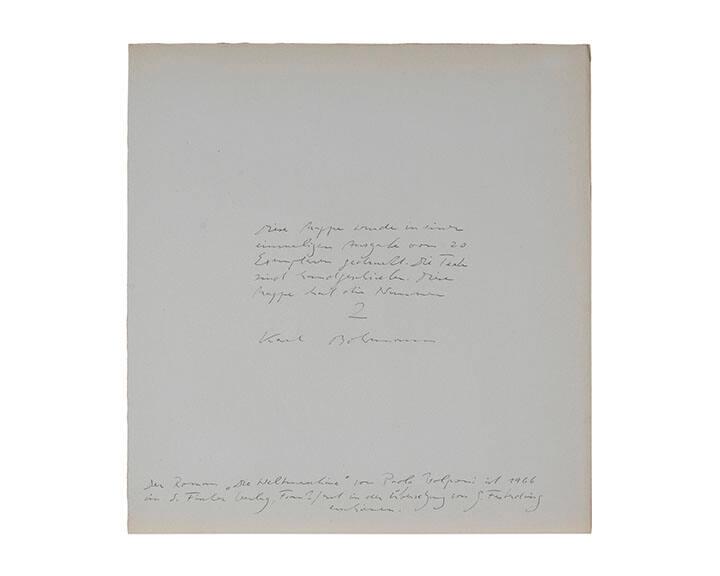 Diese Mappe wurde in einer
einmaligen Ausgabe von 20
Exemplaren gedruckt. Die Texte
sind handgeschrieben. Diese
Mappe hat die Nummer
2
Karl Bohrmann
Der Roman „Die Weltmaschine" von Paolo Volponi ist 1966
im S. Fischer Verlag, Frankfurt in der Übersetzung von
erschienen.